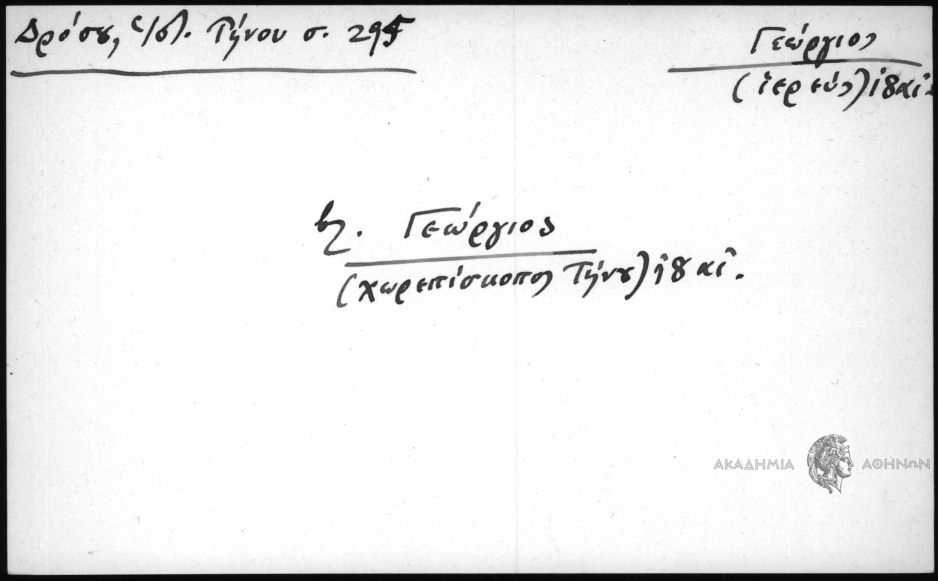 Δρόσου, Ἱστ. Τήνου σ. 295
Γεώργιος
(ἱερεύς) 18 αἰ.
βλ. Γεώργιος
(χωρεπίσκοπος Τήνου) 18 αἰ.
ΑΚΑΔΗΜΙΑ ΑΘΗΝΩΝ